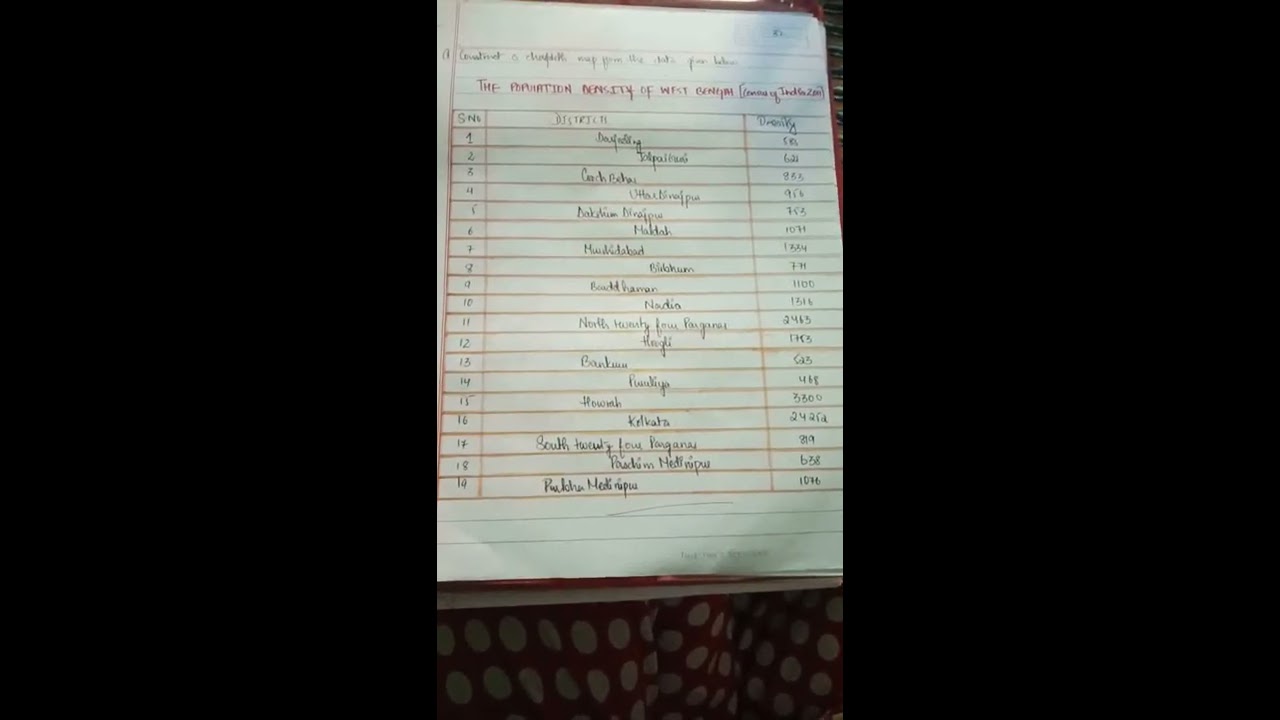 Q Construct a choropleth map from the data given below
THE POPULATION DENSITY OF WEST BENGAL [Census of India 2011]
S.No DISTRICTS Density
1 Darjeeling 585
2 Jalpaiguri 621
3 Coach Behar 833
4 Uttar Dinajpur 956
5 Dakshin Dinajpur 753
6 Maldah 1071
7 Murshidabad 1334
8 Birbhum 771
9 Barddhaman 1100
10 Nadia 1316
11 North twenty four Parganas 2463
12 Hoogli 1753
13 Bankura 523
14 Puruliya 468
15 Howrah 3300
16 Kolkata 24252
17 South twenty four Parganas 819
18 Paschim Medinipur 638
19 Purbha Medinipur 1076